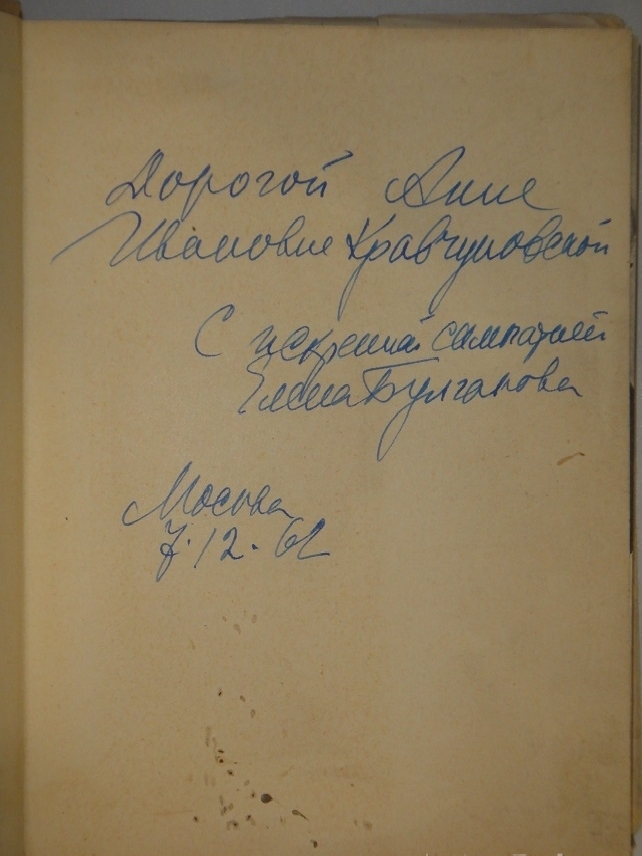 Дорогой Анне
Ивановне Кравчуновской
С искренной симпатией
Елена Булгакова
Москва
7.12.62